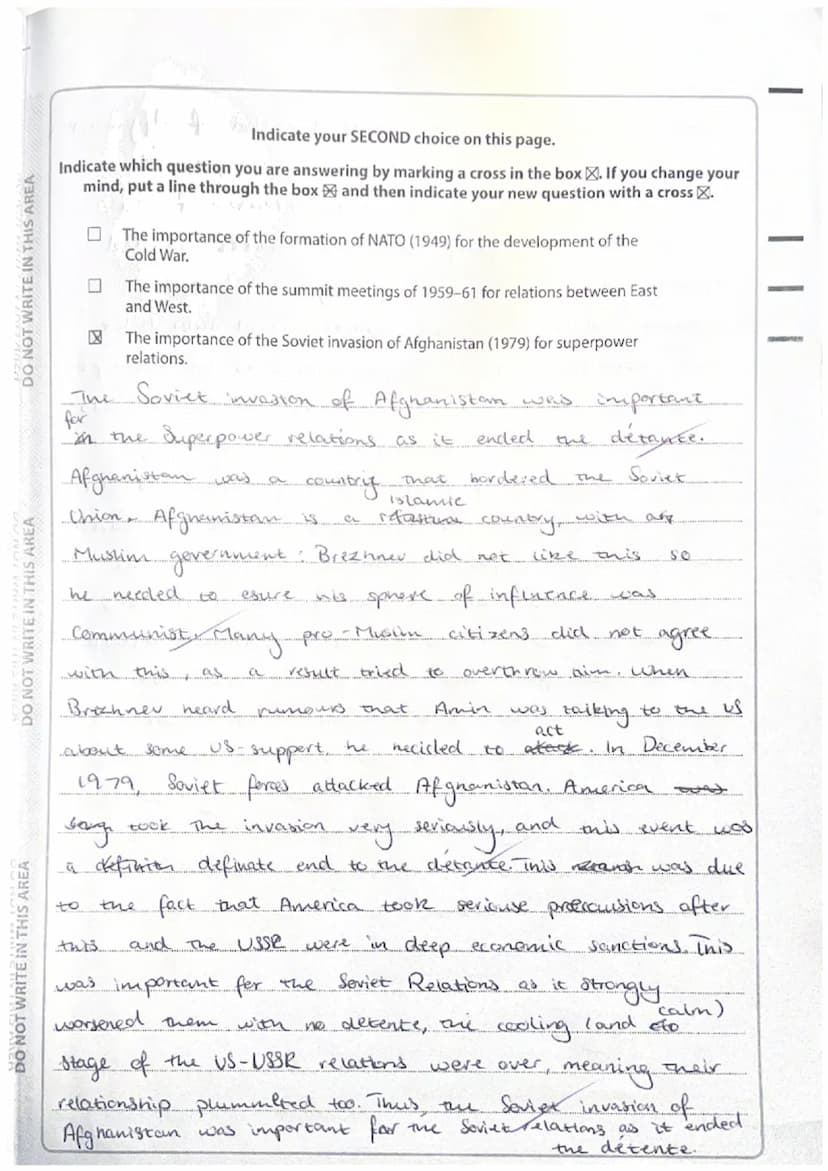 Indicate your SECOND choice on this page.
Indicate which question you are answering by marking a cross in the box ☒. If you change your
mind, put a line through the box ☒ and then indicate your new question with a cross ☒.
☐ The importance of the formation of NATO (1949) for the development of the
Cold War.
☐ The importance of the summit meetings of 1959–61 for relations between East
and West.
☒ The importance of the Soviet invasion of Afghanistan (1979) for superpower
relations.
The Soviet invasion of Afghanistan was important
for
in the Superpower relations as it ended the détante.
Afghanistan was a country that bordered the Soviet
islamic
Union. Afghanistan is a country, with a
Muslim government. Brezhnev did not like this so
he needed to esure his sphere of influence was
Communist. Many pro-Muslim citizens did not agree
with this, as a result tried to overthrow him. When
Brezhnev heard rumours that Amin was talking to the US
about some US-support, he decided to
act
attack. In December
1979, Soviet forces attacked Afghanistan. America was
took the invasion very seriously, and this event was
a definate end to the détante. This was due
to the fact that America took seriouse after
this and the USSR were in deep economic sanctions. This
was important for the Soviet Relations as it strongly
calm)
worsened them with no detente, the cooling (and
stage of the US-USSR relations were over, meaning their
relationship plummeted too. Thus, the Soviet invasion of
Afghanistan was important for the Soviet relations as it ended
the détente.
DO NOT WRITE IN THIS AREA
DO NOT WRITE IN THIS AREA
DO NOT WRITE IN THIS AREA